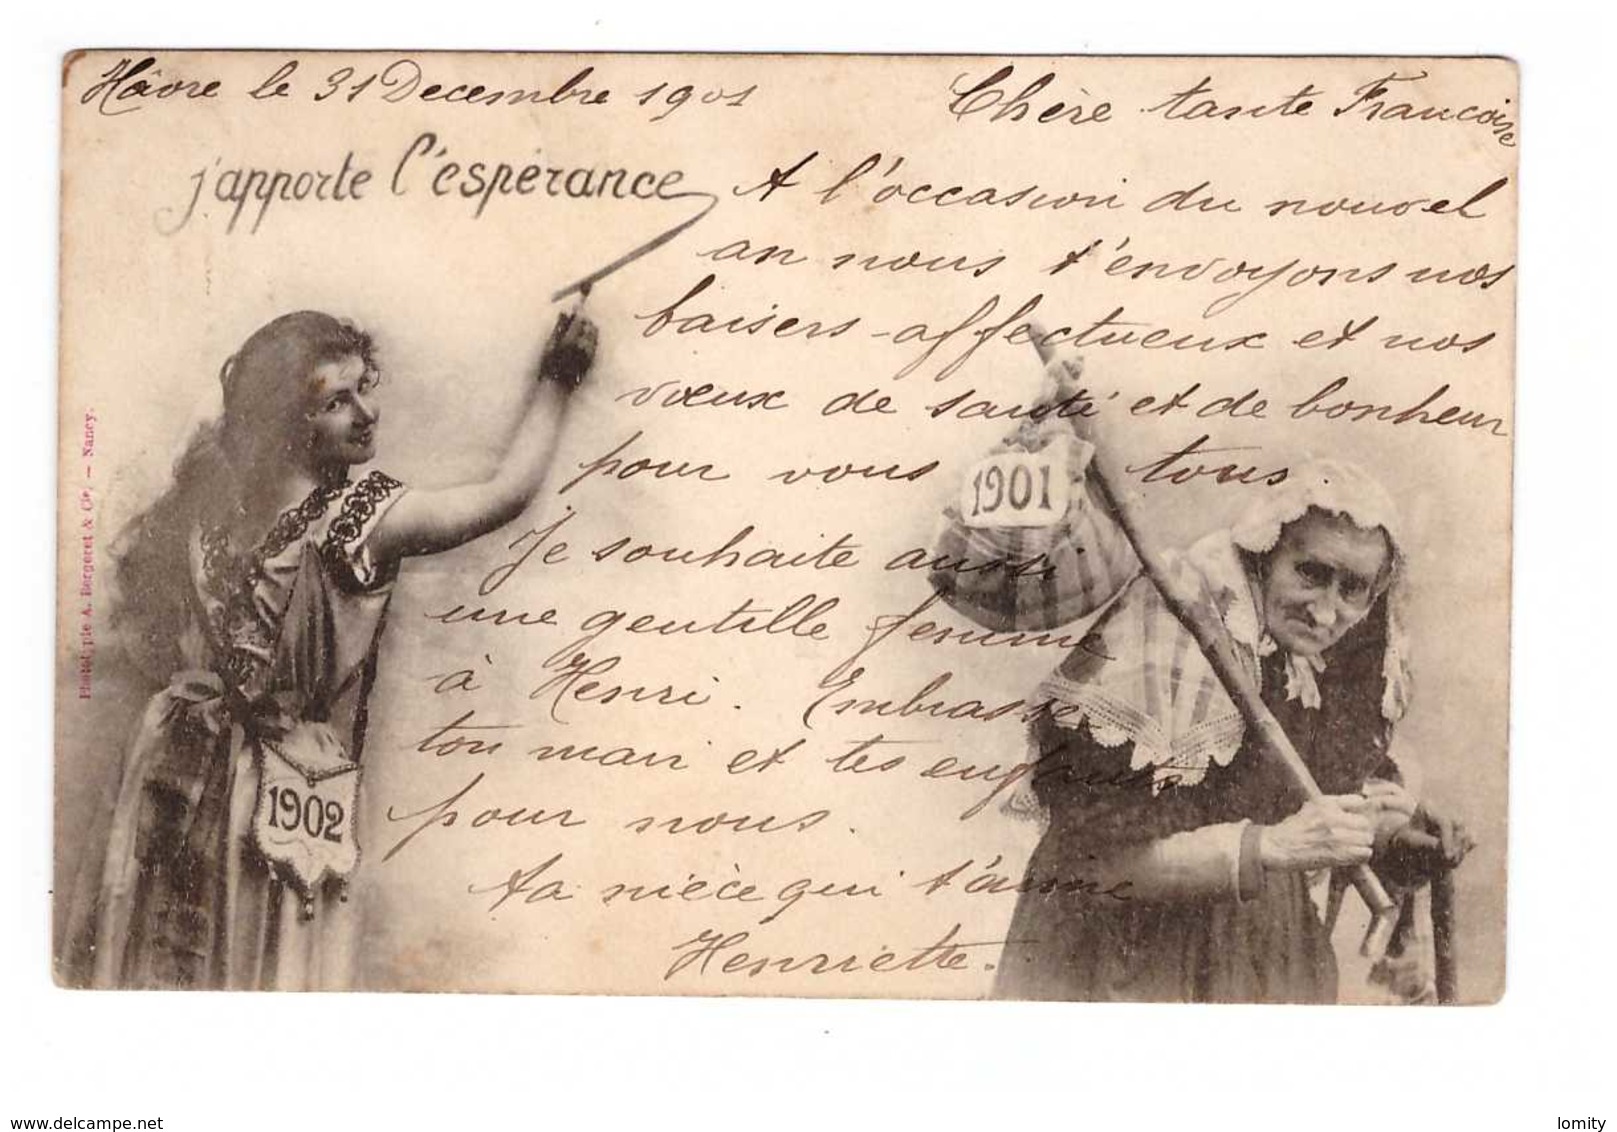 Hâvre le 31 Decembre 1901
Chère tante Francoise
j'apporte l'éspérance
A l'occasion du nouvel
an nous t'envoyons nos
baisers affectueux et nos
vœux de santé et de bonheur
pour vous tous.
1901
Je souhaite aussi
une gentille femme
à Henri. Embrasse
ton mari et tes enfants
pour nous.
1902
ta nièce qui t'aime
Henriette.
Phototypie A. Bergeret & Cie, — Nancy.
www.delcampe.net
lomity